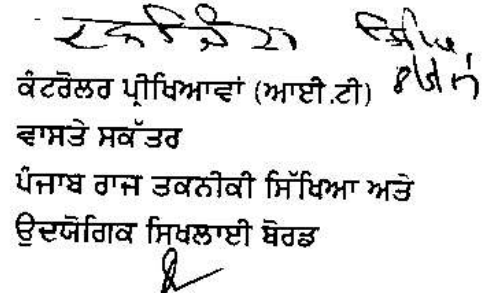 ਕੰਟਰੋਲਰ ਪ੍ਰੀਖਿਆਵਾਂ (ਆਈ.ਟੀ)
ਵਾਸਤੇ ਸਕੱਤਰ
ਪੰਜਾਬ ਰਾਜ ਤਕਨੀਕੀ ਸਿੱਖਿਆ ਅਤੇ
ਉਦਯੋਗਿਕ ਸਿਖਲਾਈ ਬੋਰਡ